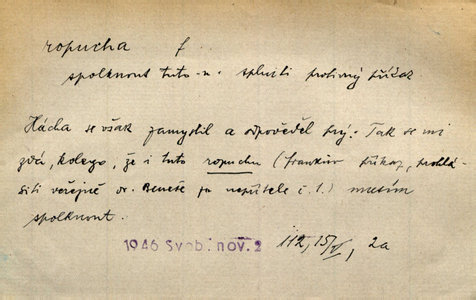 ropucha f
spolknout tuto -u. splniti protivný příkaz
Hácha se však zamyslil a odpověděl prý: Tak se mi
zdá, kolego, že i tuto ropuchu (Frankův příkaz, prohlá-
siti veřejně dr. Beneše za nepřítele č. 1.) musím
spolknout.
1946 Svob. nov. 2 112, 15/V, 2a